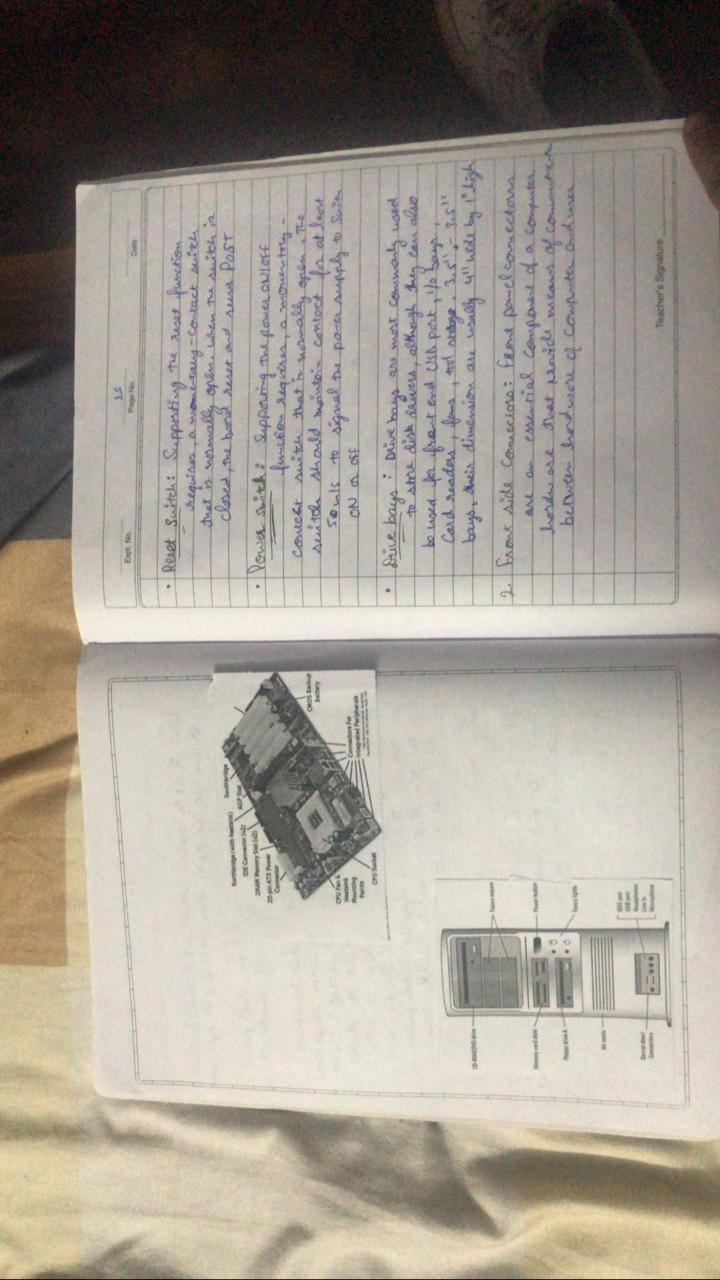 Northbridge (with heatsink)
Southbridge
IDE Connector (x2)
AGP Slot
DRAM Memory Slot (x2)
20-pin ATX Power
Connector
CMOS Backup
Battery
CPU Fan &
Heatsink
Mounting
Points
Connectors For
Integrated Peripherals
CPU Socket
CD-ROM/DVD drive
Future expans
Memory card slots
Power button
Floppy drive A
Fancy lights
Air vents
Secret door/
Connectors
USB port
Headphones
Line In
Microphone
Expt. No.
15
Page No.
Date
• Reset Switch: Supporting the reset function
requires, a momentary-contact switch
that is normally open. when the switch is
closed, the board reset and runs POST
• Power switch: Supporting the power ON/Off
function requires, a momentory-
contact switch that is normally open. The
switch should maintain contact for at least
50 m/s to signal the power supply to
ON or off
• Drive bays: Drive bays are most commonly used
to store disk drivers, although they can also
be used for front end USB port, I/O bays,
Card readers, fans, tool storage. 3.5" - 3.5"
bays, their dimension are usally 4" wide by 1" high
2. Front side Connectors: Front panel connectors
are an essential component of a computer
hardware that provide means of
between hardware of computer and user
Teacher's Signature